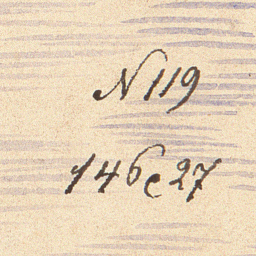 N 119
146c27